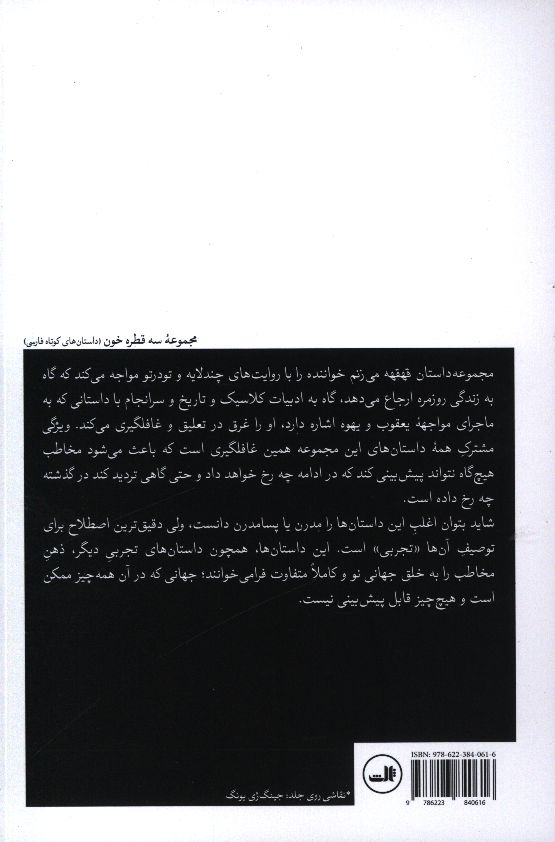 مجموعهٔ سه قطره خون (داستان‌های کوتاه فارسی)
مجموعه‌داستان قهقهه می‌زنم خواننده را با روایت‌های چندلایه و تودرتو مواجه می‌کند که گاه
به زندگی روزمره ارجاع می‌دهد، گاه به ادبیات کلاسیک و تاریخ و سرانجام با داستانی که به
ماجرای مواجههٔ یعقوب و یهوه اشاره دارد، او را غرق در تعلیق و غافلگیری می‌کند. ویژگی
مشترکِ همهٔ داستان‌های این مجموعه همین غافلگیری است که باعث می‌شود مخاطب
هیچ‌گاه نتواند پیش‌بینی کند که در ادامه چه رخ خواهد داد و حتی گاهی تردید کند در گذشته
چه رخ داده است.
شاید بتوان اغلبِ این داستان‌ها را مدرن یا پسامدرن دانست، ولی دقیق‌ترین اصطلاح برای
توصیفِ آن‌ها «تجربی» است. این داستان‌ها، همچون داستان‌های تجربیِ دیگر، ذهنِ
مخاطب را به خلق جهانی نو و کاملاً متفاوت فرامی‌خوانند؛ جهانی که در آن همه‌چیز ممکن
است و هیچ‌چیز قابل پیش‌بینی نیست.
ISBN: 978-622-384-061-6
ثالث
9 786223 840616
*نقاشی روی جلد: جینگ‌ژی یونگ